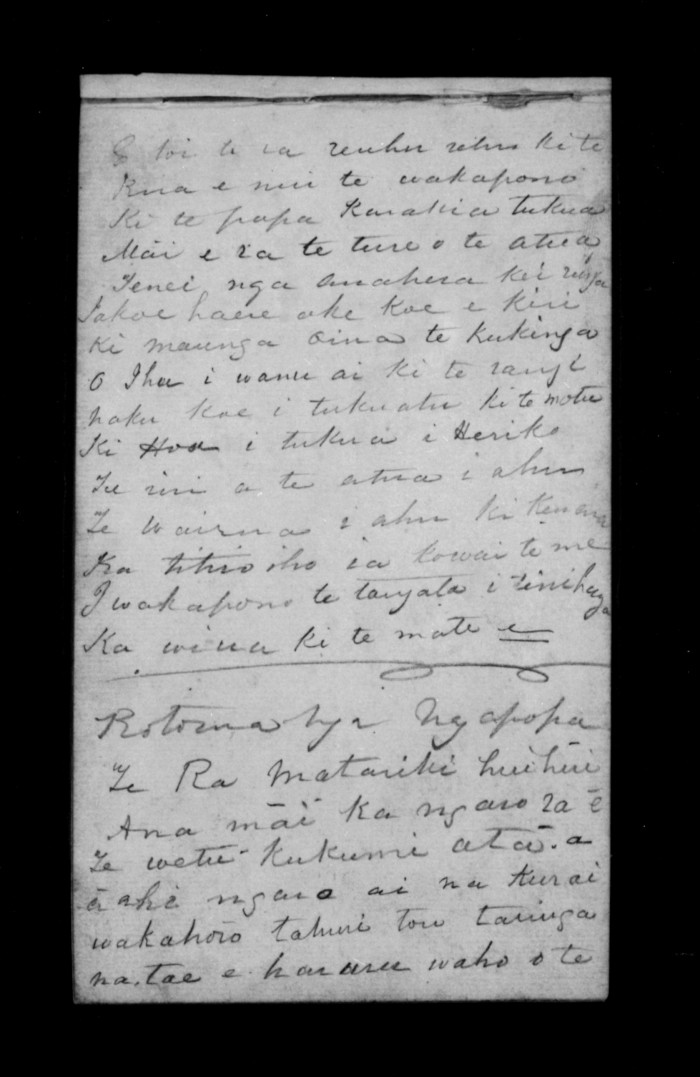 E toi te ra reuhu rehu ki te
Rua e mii te wakapono
Ki te popa Karakia tukua
Mai e ra te ture o te atua
Tenei nga Anahera kii runga
Takoe haere ake koe e kiri
Ki maunga oina te kukinga
O Ihu i wanu ai ki te rangi
naku koe i tukuatu ki te motu
Ki Hoa i tukua i Heriko
Te iri a te atua i ahu
Te wairua i ahu ki Kenana
Ka titiro iho ia kowai te me
I wakapono te tangata i
Ka wiua ki te mate e
Rotorua Ngapopa
Te Ra Matariki huihui
Ana māi ka ngaro ra ē
Te wetū kukume atā. a
ā ahi ngaro ai na Kurai
wakahōrō tahuri tou taringa
na. tae e hararu waho o te